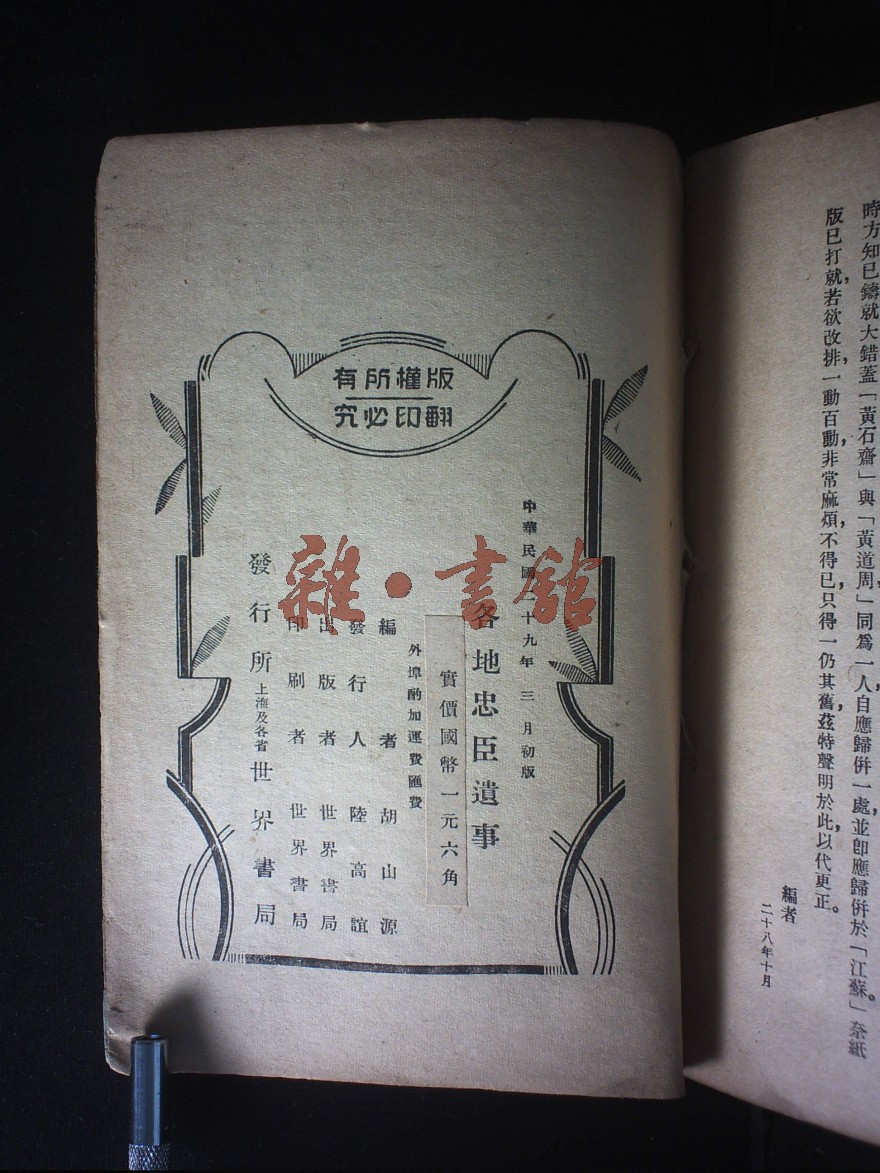 時方知已鑄就大錯蓋「黃石齋」與「黃道周」同爲一人,自應歸併一處,並卽應歸併於「江蘇」。奈紙
版已打就,若欲改排,一動百動,非常麻煩,不得已,只得一仍其舊,茲特聲明於此,以代更正。
編者
二十八年十月
版權所有
翻印必究
中華民國十九年三月初版
各地忠臣遺事
實價國幣一元六角
外埠酌加運費匯費
編者 胡山源
發行人 陸高誼
出版者 世界書局
印刷者 世界書局
發行所 上海及各省 世界書局
雜·書館